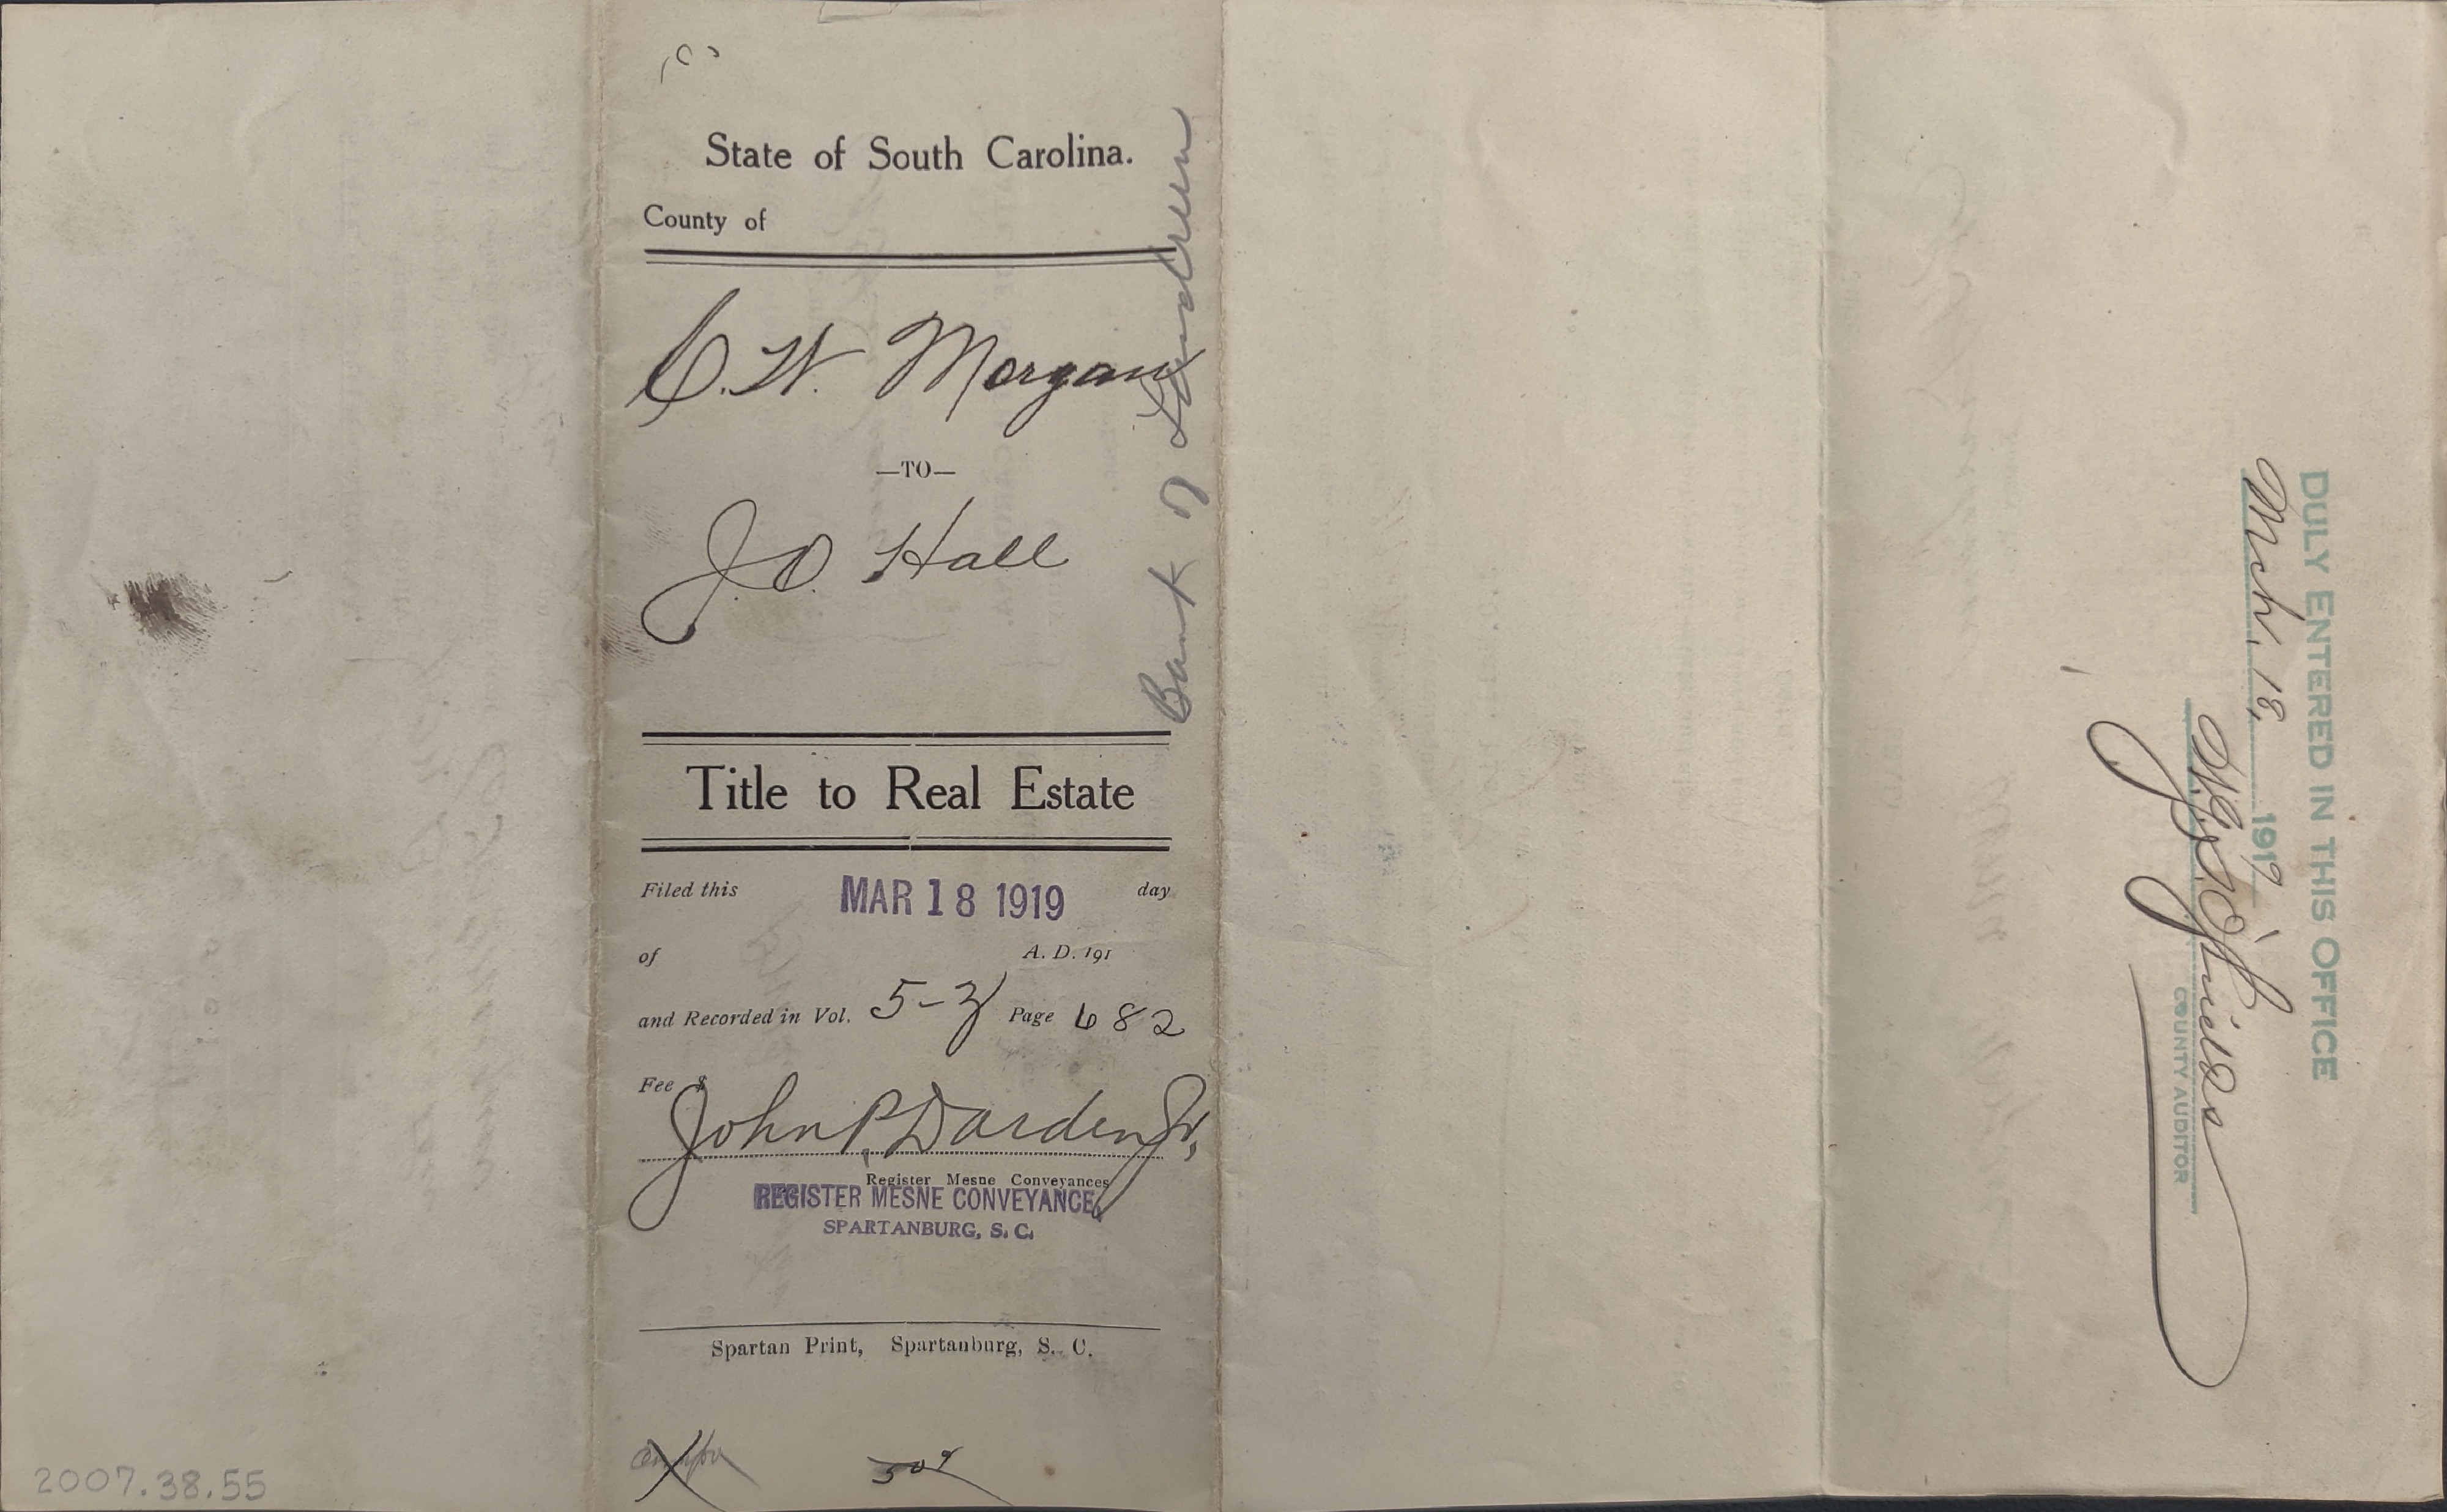 State of South Carolina.
County of
C. W. Morgan
—TO—
J. O. Hall
Bank of Landrum
Title to Real Estate
Filed this MAR 18 1919 day
of A. D. 191
and Recorded in Vol. 5-Z Page 682
Fee $
John P. Darden Jr,
Register Mesne Conveyances
REGISTER MESNE CONVEYANCE,
SPARTANBURG, S. C.
Spartan Print, Spartanburg, S. C.
509
2007.38.55
DULY ENTERED IN THIS OFFICE
Mch. 18, 1919
COUNTY AUDITOR